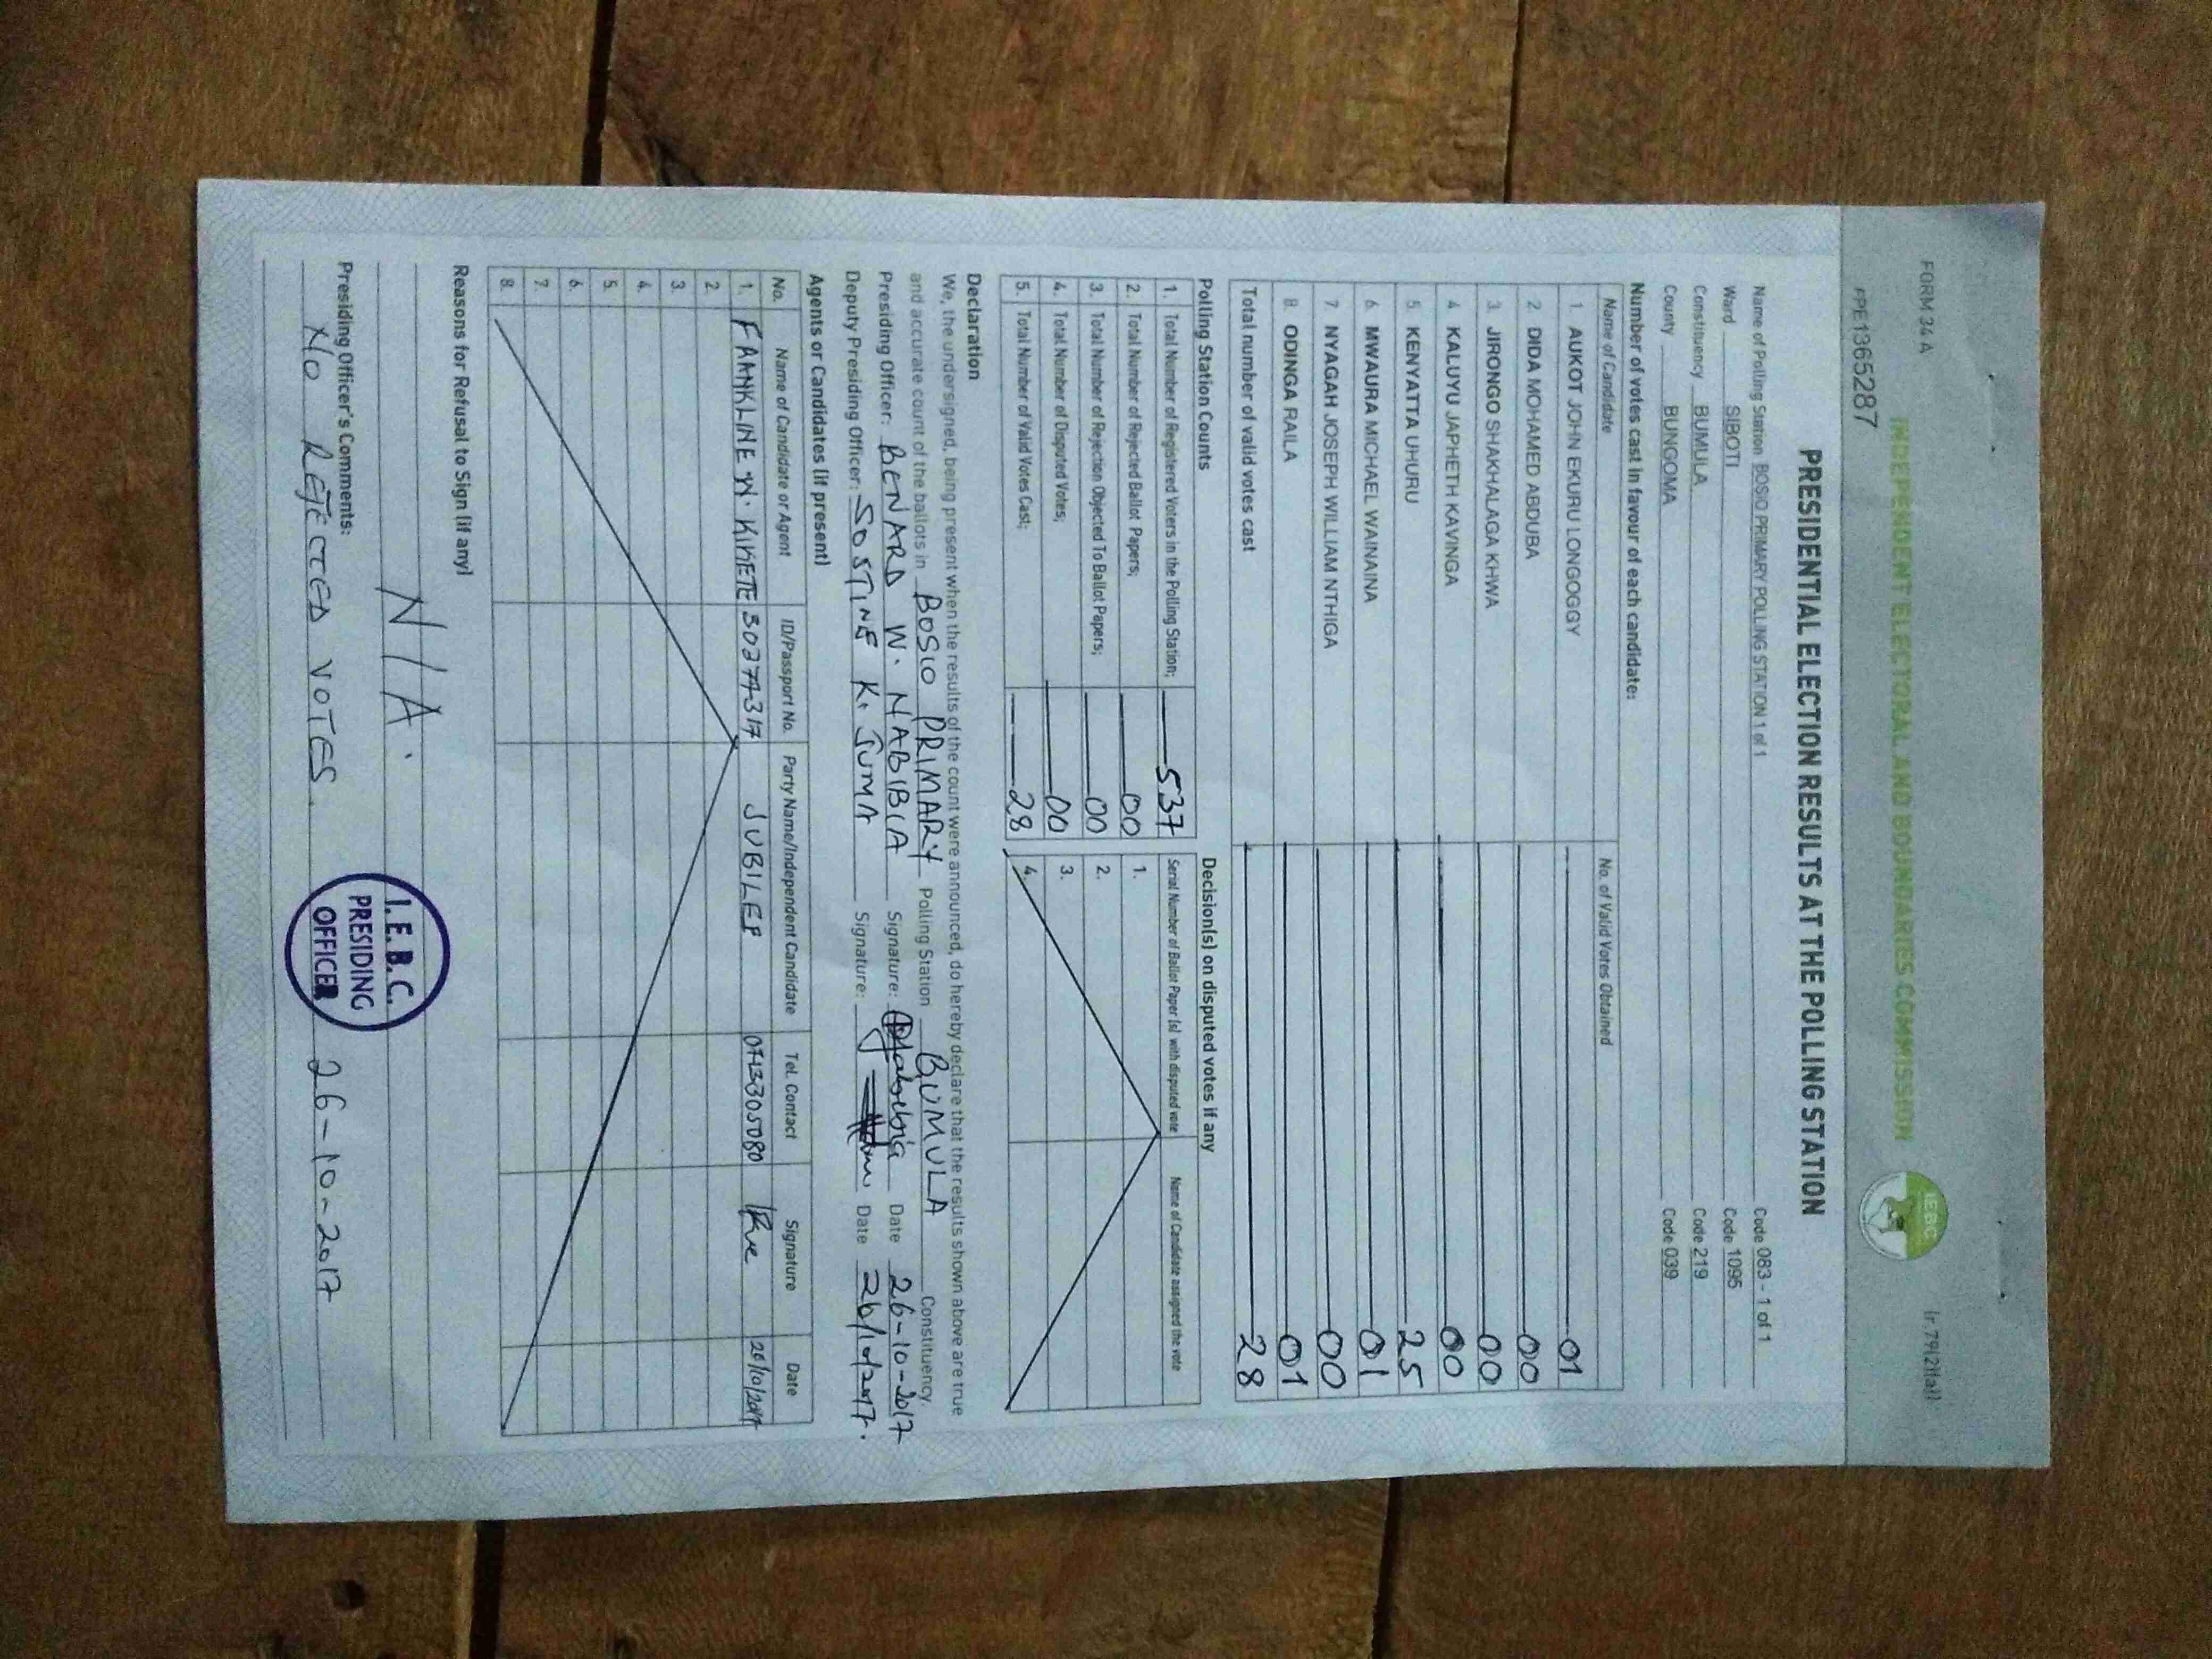 FORM 34 A
Ir 79(2)(a))
INDEPENDENT ELECTORAL AND BOUNDARIES COMMISSION
IEBC
PPE1365287
PRESIDENTIAL ELECTION RESULTS AT THE POLLING STATION
Name of Polling Station BOSIO PRIMARY POLLING STATION 1 of 1 Code 083 - 1 of 1
Ward SIBOTI Code 1095
Constituency BUMULA Code 219
County BUNGOMA Code 039
Number of votes cast in favour of each candidate:
Name of Candidate No. of Valid Votes Obtained
1. AUKOT JOHN EKURU LONGOGGY 01
2. DIDA MOHAMED ABDUBA 00
3. JIRONGO SHAKHALAGA KHWA 00
4 KALUYU JAPHETH KAVINGA 00
5 KENYATTA UHURU 25
6. MWAURA MICHAEL WAINAINA 01
7 NYAGAH JOSEPH WILLIAM NTHIGA 00
8. ODINGA RAILA 01
Total number of valid votes cast 28
Polling Station Counts
1. Total Number of Registered Voters in the Polling Station; 537
2. Total Number of Rejected Ballot Papers; 00
3. Total Number of Rejection Objected To Ballot Papers; 00
4. Total Number of Disputed Votes; 00
5. Total Number of Valid Votes Cast; 28
Decision(s) on disputed votes if any
Serial Number of Ballot Paper (s) with disputed vote Name of Candidate assigned the vote
1.
2.
3.
4.
Declaration
We, the undersigned, being present when the results of the count were announced, do hereby declare that the results shown above are true
and accurate count of the ballots in BOSIO PRIMARY Polling Station BUMULA Constituency
Presiding Officer: BENARD W. NABIBIA Signature: Date 26-10-2017
Deputy Presiding Officer: SOSTINE K. JUMA Signature: Date 26/10/2017.
Agents or Candidates (if present)
No. Name of Candidate or Agent ID/Passport No. Party Name/Independent Candidate Tel. Contact Signature Date
1. FANKLINE W. KIKETE 30274317 JUBILEE 0713305080 26/10/2017
2.
3.
4.
5.
6.
7.
8.
Reasons for Refusal to Sign (if any)
N/A.
Presiding Officer's Comments:
NO REJECTED VOTES.
I.E.B.C.
PRESIDING
OFFICER
26-10-2017